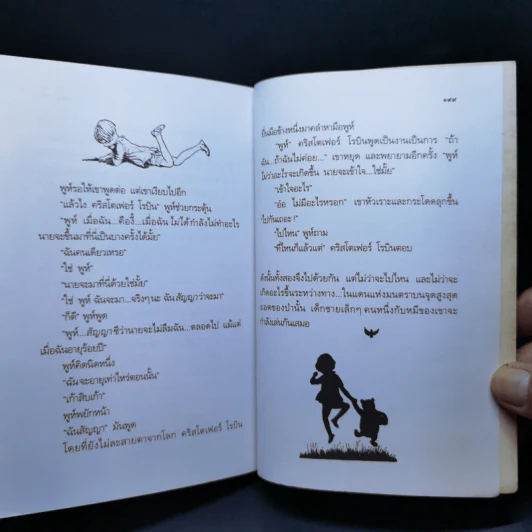 พูห์รอให้เขาพูดต่อ แต่เขาเงียบไปอีก
"แล้วไง คริสโตเฟอร์ โรบิน" พูห์ช่วยกระตุ้น
"พูห์ เมื่อฉัน...คืองี้...เมื่อฉัน ไม่ได้กำลังไม่ทำอะไร
นายจะขึ้นมาที่นี่เป็นบางครั้งได้มั้ย"
"ฉันคนเดียวเหรอ"
"ใช่ พูห์"
"นายจะมาที่นี่ด้วยใช่มั้ย"
"ใช่ พูห์ ฉันจะมา...จริงๆ นะ ฉันสัญญาว่าจะมา"
"ก็ดี" พูห์พูด
"พูห์...สัญญาซีว่านายจะไม่ลืมฉัน...ตลอดไป แม้แต่
เมื่อฉันอายุร้อยปี"
พูห์คิดนิดหนึ่ง
"ฉันจะอายุเท่าไหร่ตอนนั้น"
"เก้าสิบเก้า"
พูห์พยักหน้า
"ฉันสัญญา" มันพูด
โดยที่ยังไม่ละสายตาจากโลก คริสโตเฟอร์ โรบิน
๑๙๙
ยื่นมือข้างหนึ่งมาคลำหามือพูห์
"พูห์" คริสโตเฟอร์ โรบินพูดเป็นงานเป็นการ "ถ้า
ฉัน...ถ้าฉันไม่ค่อย..." เขาหยุด และพยายามอีกครั้ง "พูห์
ไม่ว่าอะไรจะเกิดขึ้น นายจะเข้าใจ...ใช่มั้ย"
"เข้าใจอะไร"
"อ๋อ ไม่มีอะไรหรอก" เขาหัวเราะและกระโดดลุกขึ้น
"ไปกันเถอะ !"
"ไปไหน" พูห์ถาม
"ที่ไหนก็แล้วแต่" คริสโตเฟอร์ โรบินตอบ
ดังนั้นทั้งสองจึงไปด้วยกัน แต่ไม่ว่าจะไปไหน และไม่ว่าจะ
เกิดอะไรขึ้นระหว่างทาง...ในแดนแห่งมนตราบนจุดสูงสุด
ยอดของป่านั้น เด็กชายเล็กๆ คนหนึ่งกับหมีของเขาจะ
กำลังเล่นกันเสมอ